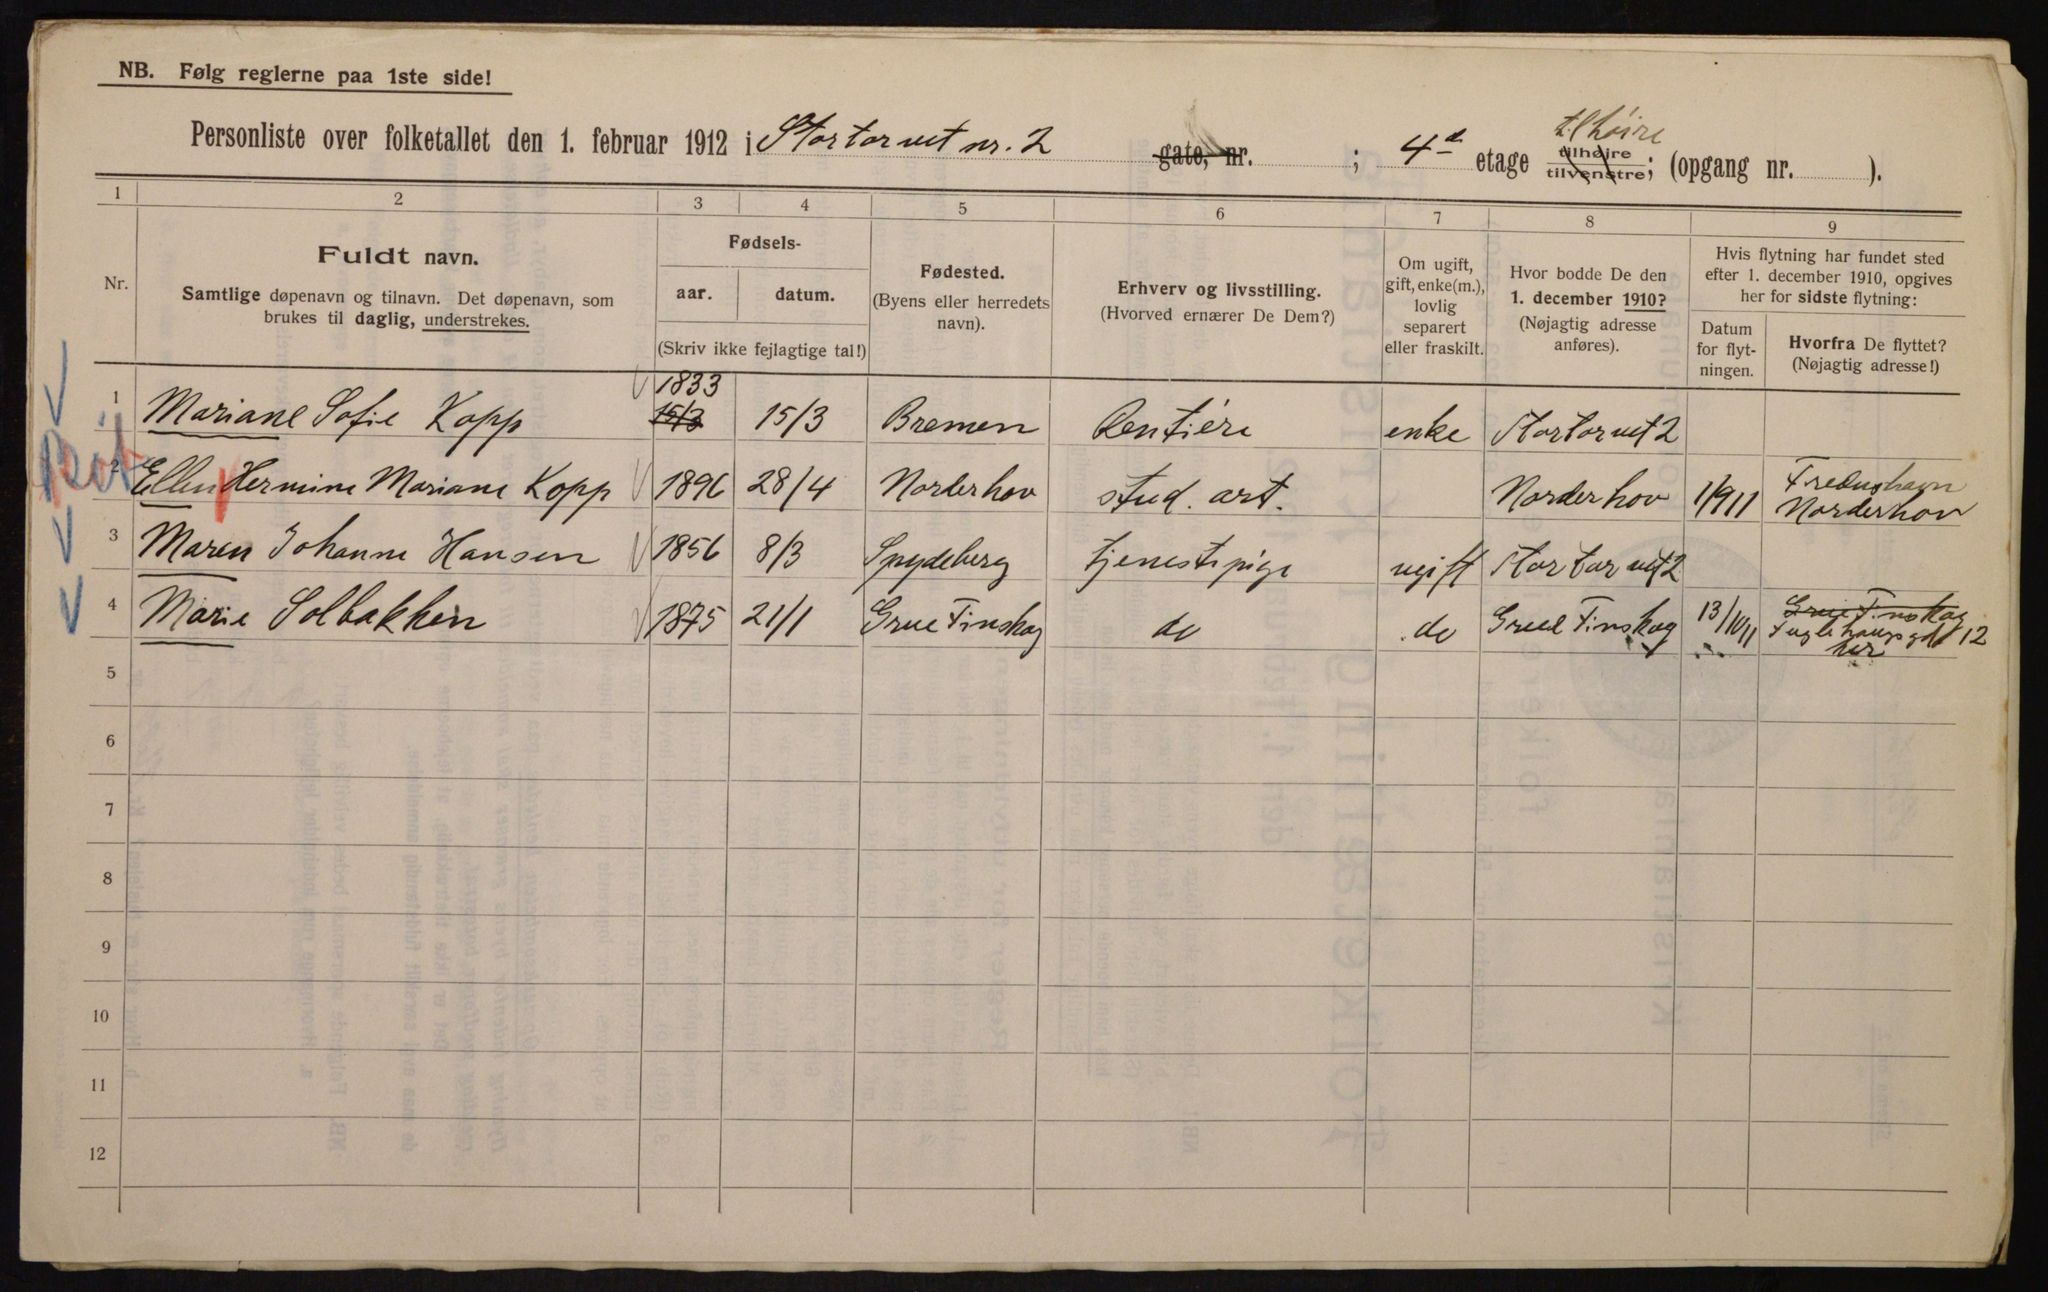 NB. Følg reglerne paa 1ste side!
Personliste over folketallet den 1. februar 1912 i Stortorvet nr. 2 gate, nr. ; 4de etage tilhøire tilhøire tilvenstre; (opgang nr. ).
1 2 3 4 5 6 7 8 9
Nr.
Fuldt navn.
Samtlige døpenavn og tilnavn. Det døpenavn, som
brukes til daglig, understrekes.
Fødsels-
aar. datum.
(Skriv ikke fejlagtige tal!)
Fødested.
(Byens eller herredets
navn).
Erhverv og livsstilling.
(Hvorved ernærer De Dem?)
Om ugift,
gift, enke(m.),
lovlig
separert
eller fraskilt.
Hvor bodde De den
1. december 1910?
(Nøjagtig adresse
anføres).
Hvis flytning har fundet sted
efter 1. december 1910, opgives
her for sidste flytning:
Datum
for flyt-
ningen.
Hvorfra De flyttet?
(Nøjagtig adresse!)
1 Mariane Sofie Kopp 1833 15/3 15/3 Bremen Rentière enke Stortorvet 2
2 Ellen Hermine Mariane Kopp 1896 28/4 Norderhov stud. art. Norderhov 1/9 11 Norderhov
3 Maren Johanne Hansen 1856 8/3 Spydeberg tjenestepige ugift Stortorvet 2
4 Marie Solbakken 1875 21/1 Grue Finskog do do Grue Finskog 13/10 11 Grue Finskog
12
her
5
6
7
8
9
10
11
12